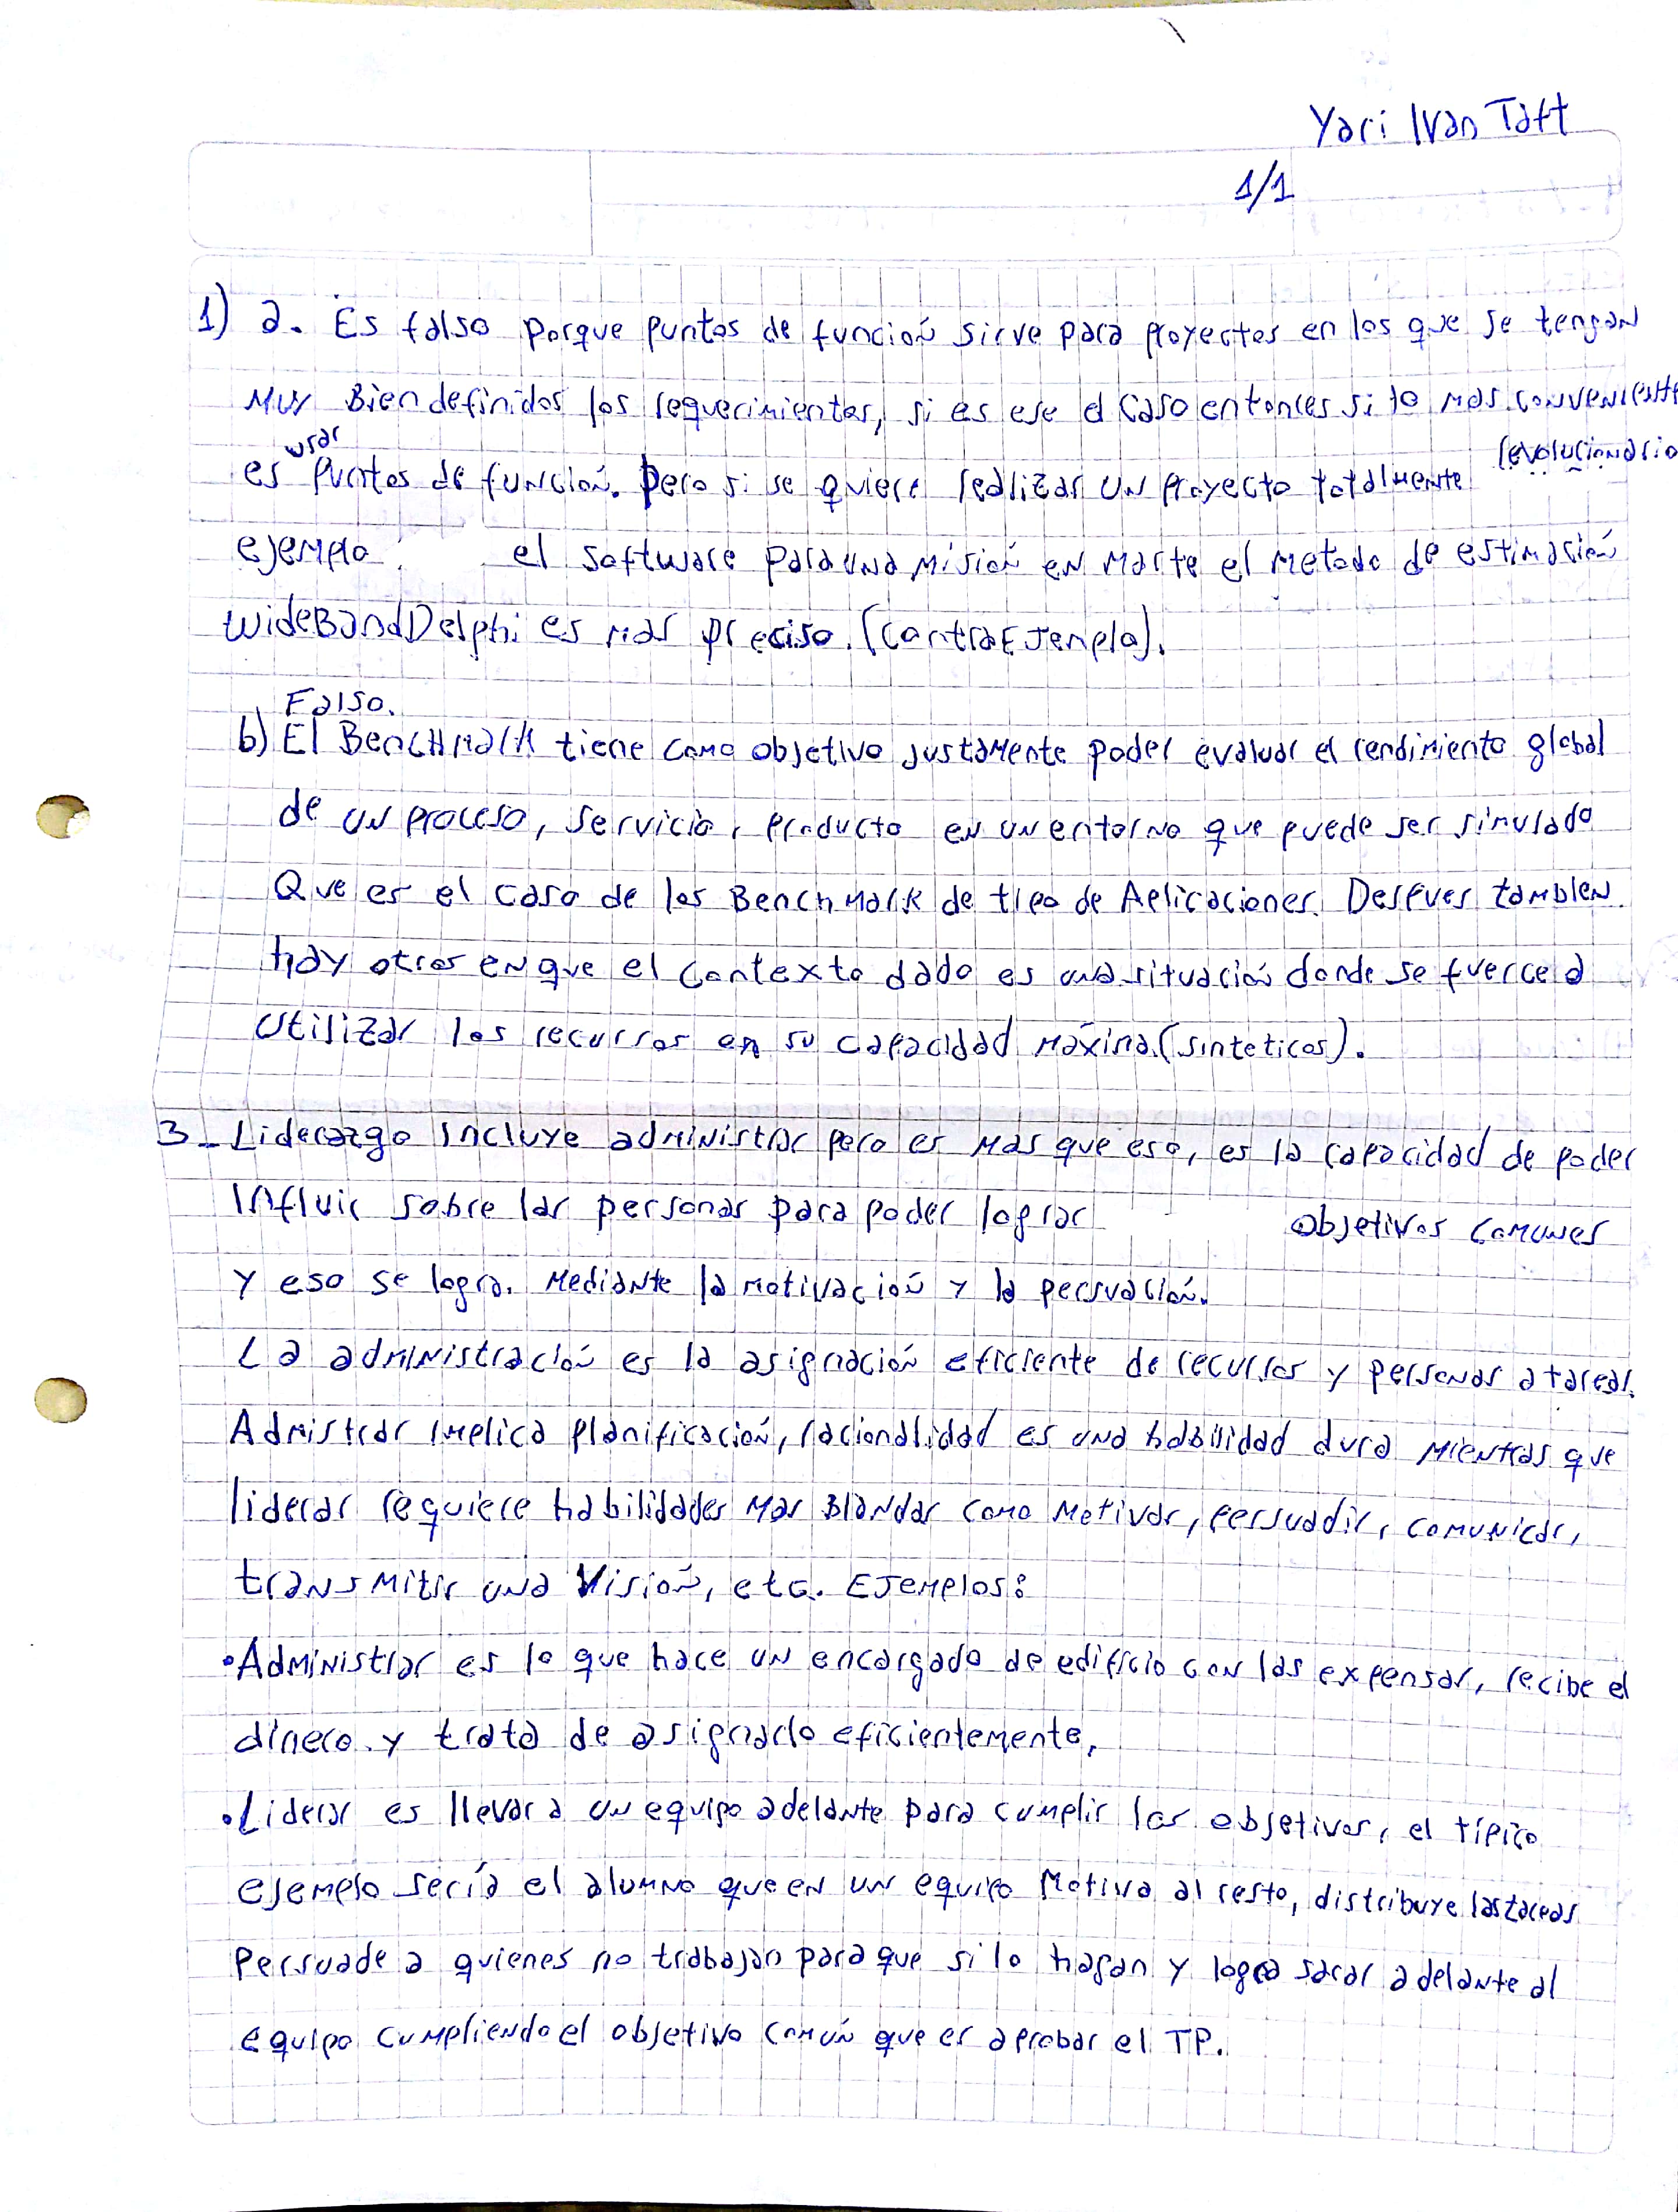 Yari Ivan Taft
1/1
1) a. Es falso porque puntos de función sirve para proyectos en los que se tengan
Muy Bien definidos los requerimientos, si es ese el caso entonces si lo mas conveniente
es usar Puntos de función. Pero si se quiere realizar un proyecto totalmente revolucionario
ejemplo: el software para una misión en Marte el metodo de estimación
WideBandDelphi es mas preciso. (ContraEjemplo).
Falso.
b) El BencHmark tiene como objetivo justamente poder evaluar el rendimiento global
de un proceso, servicio, producto en un entorno que puede ser simulado
Que es el caso de los Benchmark de tipo de Aplicaciones. Despues tambien
hay otros en que el contexto dado es una situación donde se fuerce a
utilizar los recursos en su capacidad máxima (sinteticos).
3- Liderazgo incluye administrar pero es mas que eso, es la capacidad de poder
Influir sobre las personas para poder lograr objetivos comunes
y eso se logra. Mediante la motivación y la persuación.
La administración es la asignación eficiente de recursos y personas a tareas.
Admistrar implica planificación, racionalidad es una habilidad dura mientras que
liderar requiere habilidades mas blandas como motivar, persuadir, comunicar,
transmitir una Visión, etc. Ejemplos:
•Administrar es lo que hace un encargado de edificio con las expensas, recibe el
dinero y trata de asignarlo eficientemente,
•Liderar es llevar a un equipo adelante para cumplir los objetivos, el típico
ejemplo sería el alumno que en un equipo Motiva al resto, distribuye las tareas
Persuade a quienes no trabajan para que si lo hagan y logra sacar adelante al
equipo cumpliendo el objetivo común que es aprobar el TP.